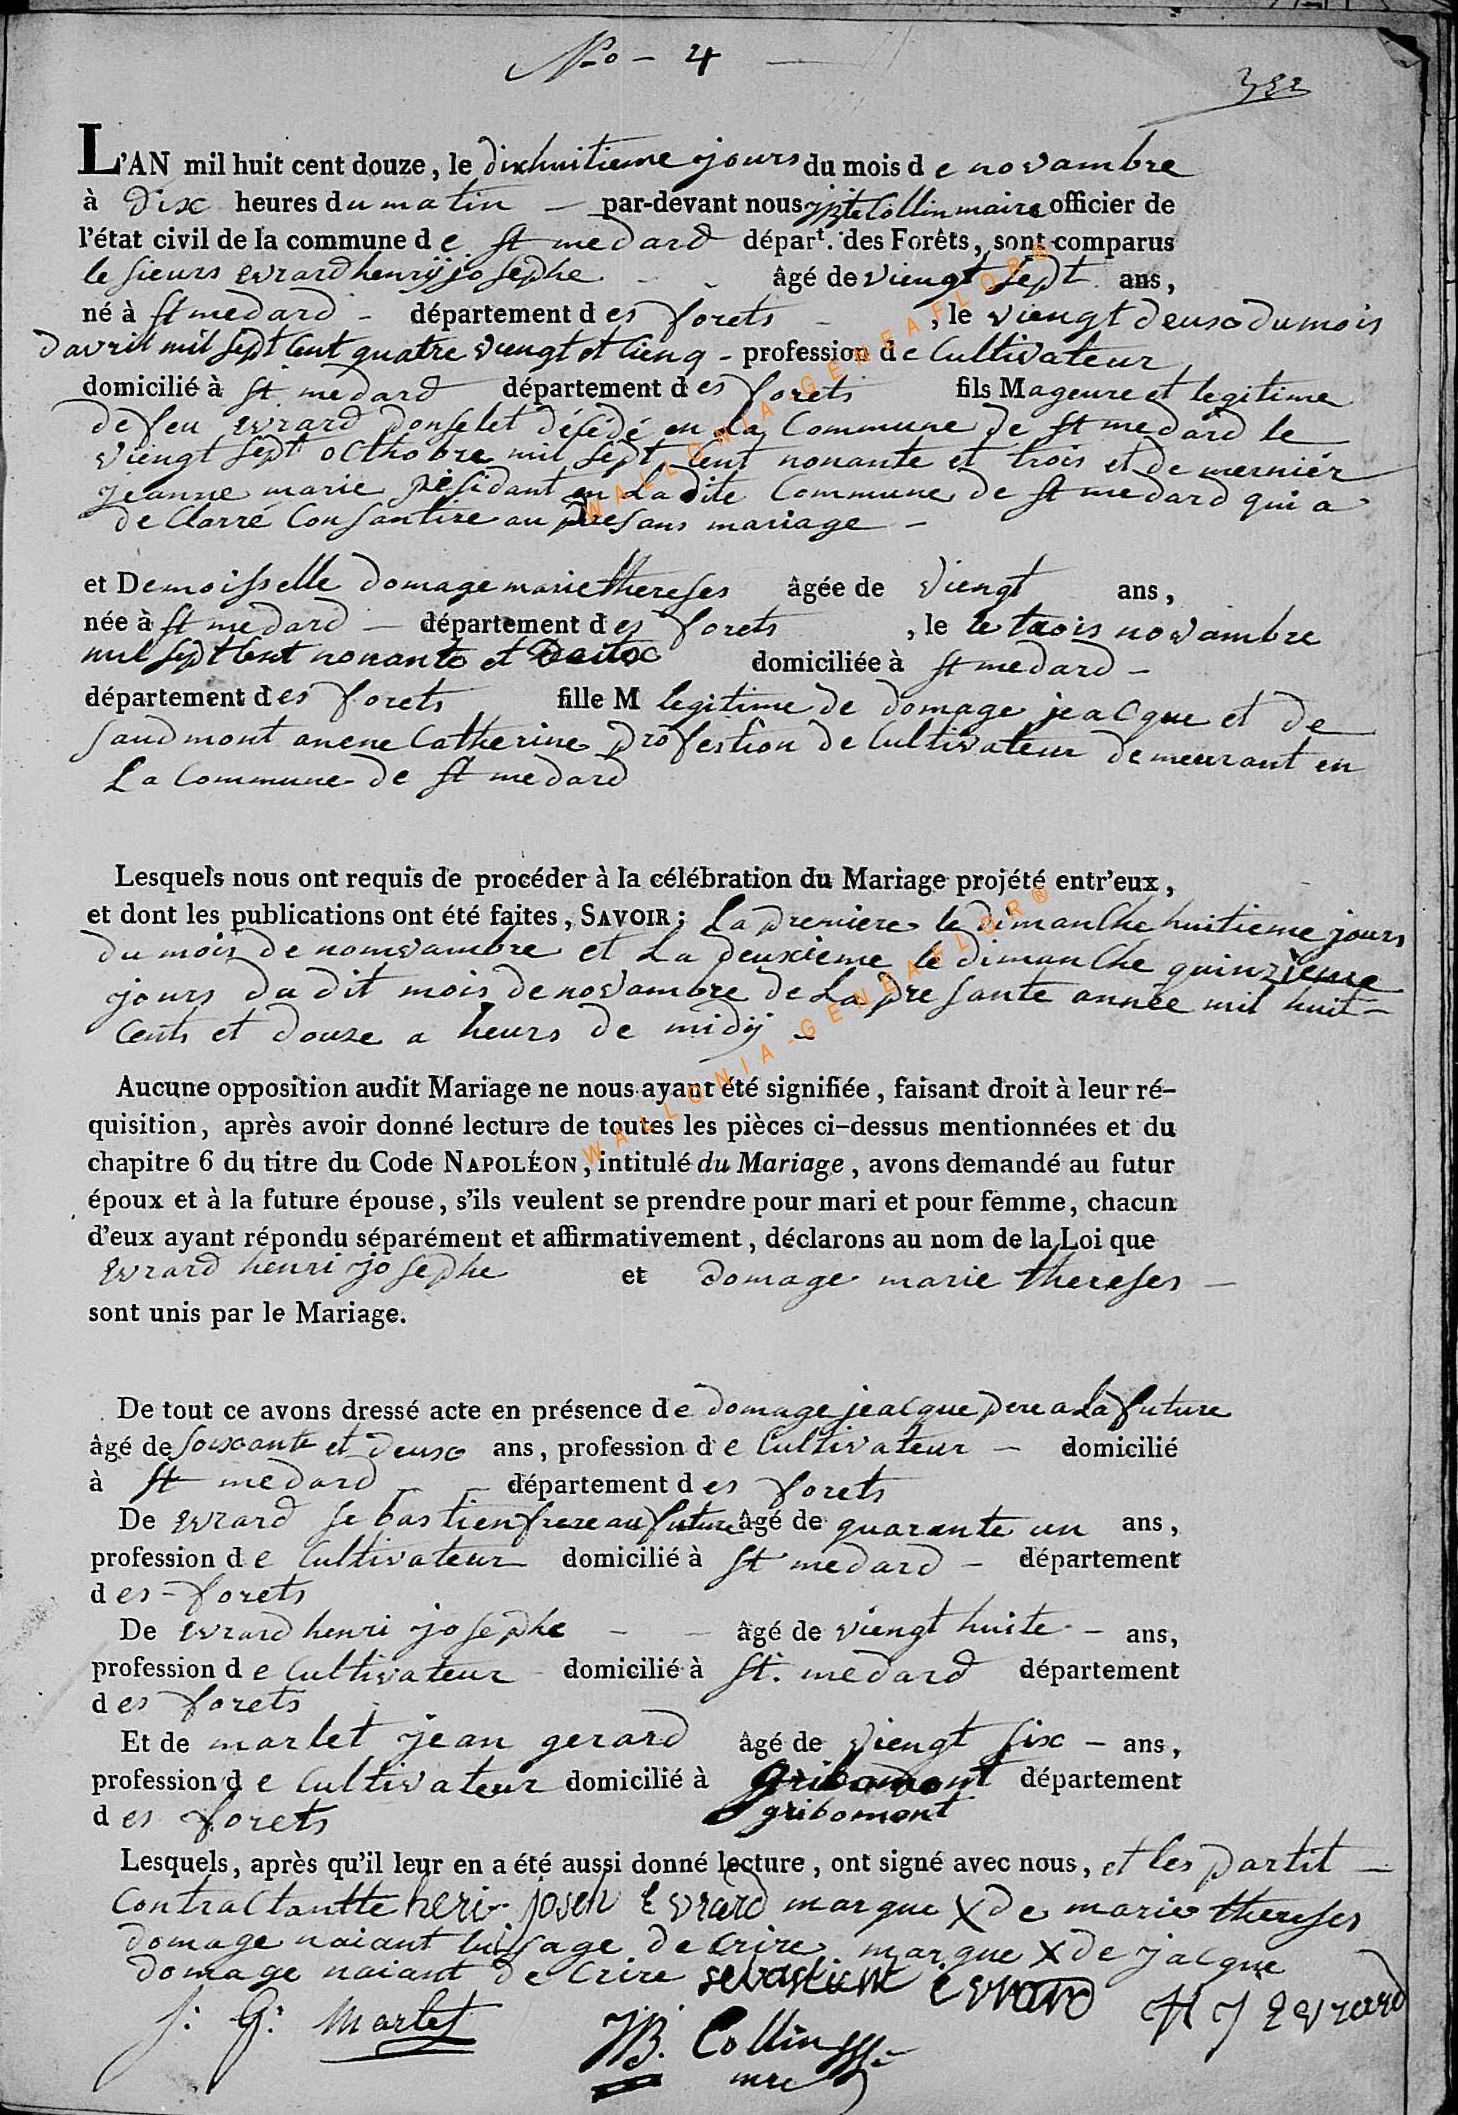 No - 4
352
L'AN mil huit cent douze, le dixhuitieme jours du mois de novambre
à dix heures du matin - par-devant nous jpte Collin maire officier de
l'état civil de la commune de st medard départ. des Forêts, sont comparus
le sieurs evrard henrÿ josephe âgé de viengt sept ans,
né à st medard - département des forets - , le viengt deux du mois
davril mil sept cent quatre viengt et cienq - profession de Cultivateur
domicilié à st. medard département des forets fils Mageure et legitime
de feu evrard ponselet désédé en la Commune de st medard le
viengt sept octhobre mil sept cent nonante et trois et de merniér
jeanne marie résidant en Ladite Commune de st medard qui a
de Clarré Consantire au presans mariage -
et Demoisselle domage marie thereses âgée de viengt ans,
née à st medard - département des forets , le le trois novambre
mil sept Cent nonante et Deux domiciliée à st medard -
département des forets fille M legitime de domage jeacque et de
saudmont anene Catherine profession de Cultivateur demeurant en
La Commune de st medard
Lesquels nous ont requis de procéder à la célébration du Mariage projété entr'eux,
et dont les publications ont été faites, SAVOIR: La premiere le dimanche huitieme jours
du mois de nomvambre et La deuxieme le dimanche quinzieme
jours du dit mois de novambre de La presante année mil huit-
Cents et douze a heurs de midÿ -
Aucune opposition audit Mariage ne nous ayant été signifiée, faisant droit à leur ré-
quisition, après avoir donné lecture de toutes les pièces ci-dessus mentionnées et du
chapitre 6 du titre du Code NAPOLÉON, intitulé du Mariage, avons demandé au futur
époux et à la future épouse, s'ils veulent se prendre pour mari et pour femme, chacun
d'eux ayant répondu séparément et affirmativement, déclarons au nom de la Loi que
evrard henri josephe et domage marie thereses -
sont unis par le Mariage.
De tout ce avons dressé acte en présence de domage jeacque pere a La future
âgé de soixante et deux ans, profession de Cultivateur - domicilié
à st medard - département des forets
De evrard sebastien frere au future âgé de quarante un ans,
profession de Cultivateur domicilié à st medard - département
des - forets
De evrard henri josephe - - âgé de viengt huite - ans,
profession de Cultivateur domicilié à st. medard département
des forets
Et de marlet jean gerard âgé de viengt six - ans,
profession de Cultivateur domicilié à gribomont département
des forets gribomont
Lesquels, après qu'il leur en a été aussi donné lecture, ont signé avec nous, et les partit -
Contractantte heri joseh Evrard marque X de marie thereses
domage naiant lussage de Crire marque X de jacque
domage naiant de Crire sebastient evrard H J Evrard
J: G: Marlet JB. Collin
mre
WALLONIA-GENEAFLOR®
WALLONIA-GENEAFLOR®